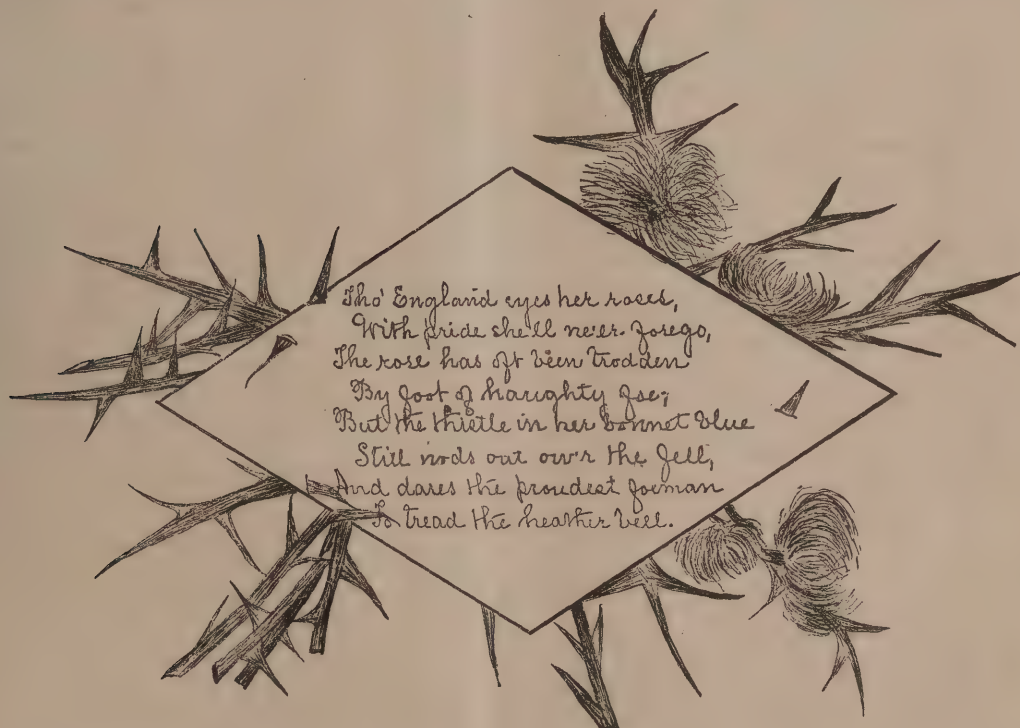 Tho' England eyes her roses,
With pride she'll ne'er forego,
The rose has oft been trodden
By foot of haughty foe;
But the thistle in her bonnet blue
Still nods out ow'r the fell,
And dares the proudest foeman
To tread the heather bell.